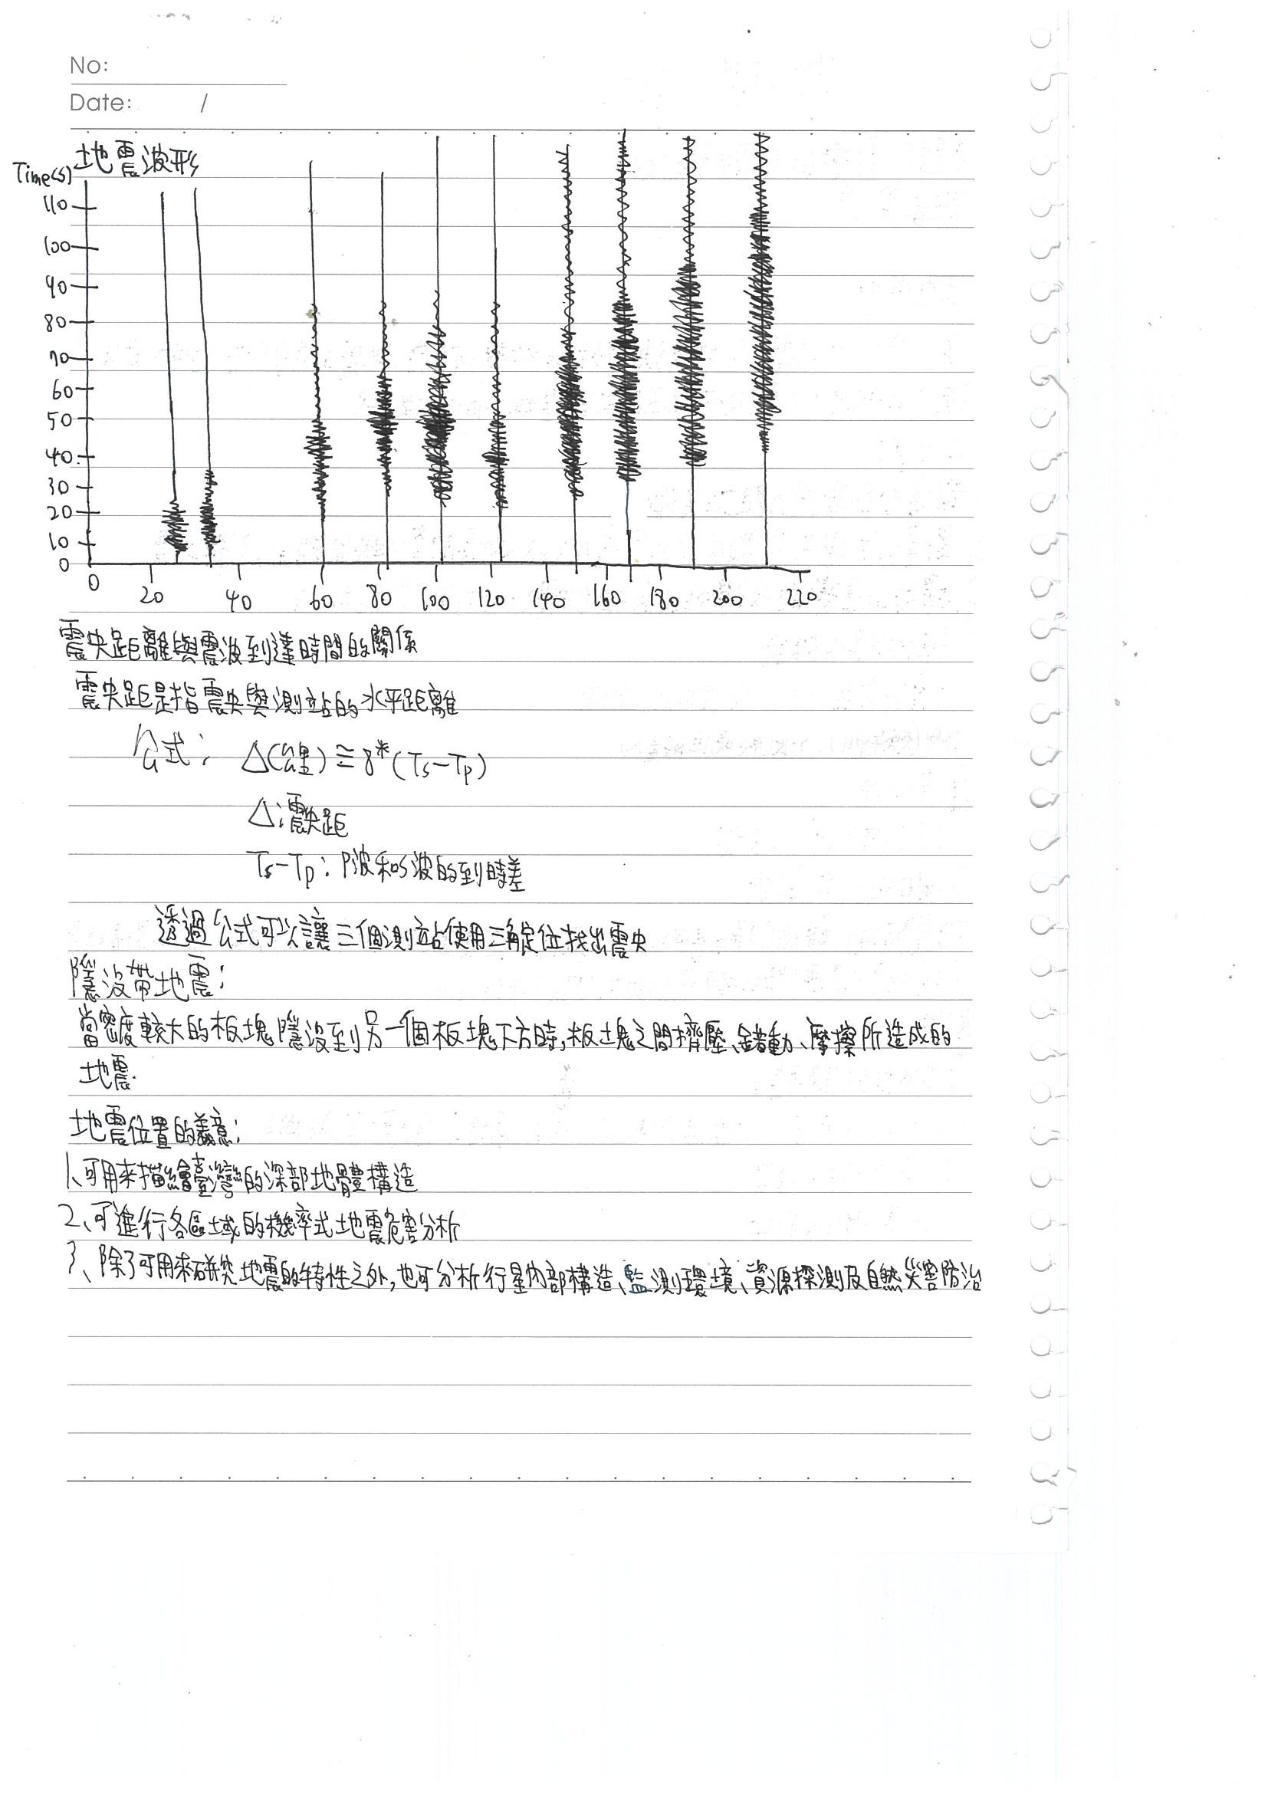 No:
Date: /
地震波形
Time(s)
110
100
90
80
70
60
50
40
30
20
10
0
0 20 40 60 80 100 120 140 160 180 200 220
震央距離與震波到達時間的關係
震央距是指震央與測站的水平距離
公式: Δ(公里)≅8*(Ts-Tp)
Δ:震央距
Ts-Tp:P波和S波的到時差
透過公式可以讓三個測站使用三角定位找出震央
隱沒帶地震:
當密度較大的板塊隱沒到另一個板塊下方時,板塊之間擠壓、錯動、摩擦所造成的
地震.
地震位置的義意:
1、可用來描繪臺灣的深部地體構造
2、可進行各區域的機率式地震危害分析
3、除了可用來研究地震的特性之外,也可分析行星內部構造、監測環境、資源探測及自然災害防治